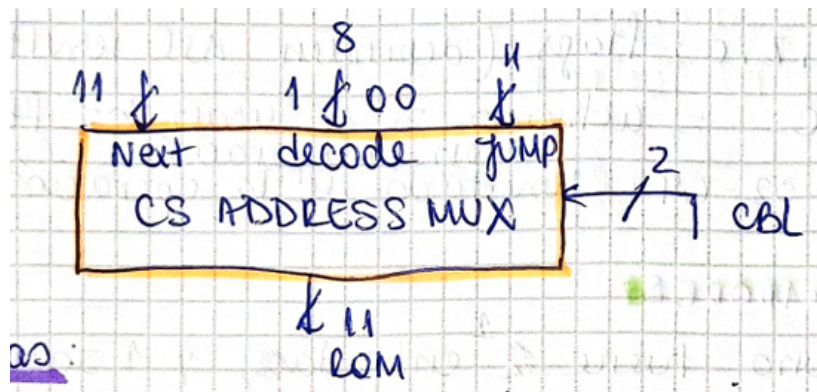 8
11 1 00 11
Next decode JUMP
2
CS ADDRESS MUX
CBL
11
as:
ROM